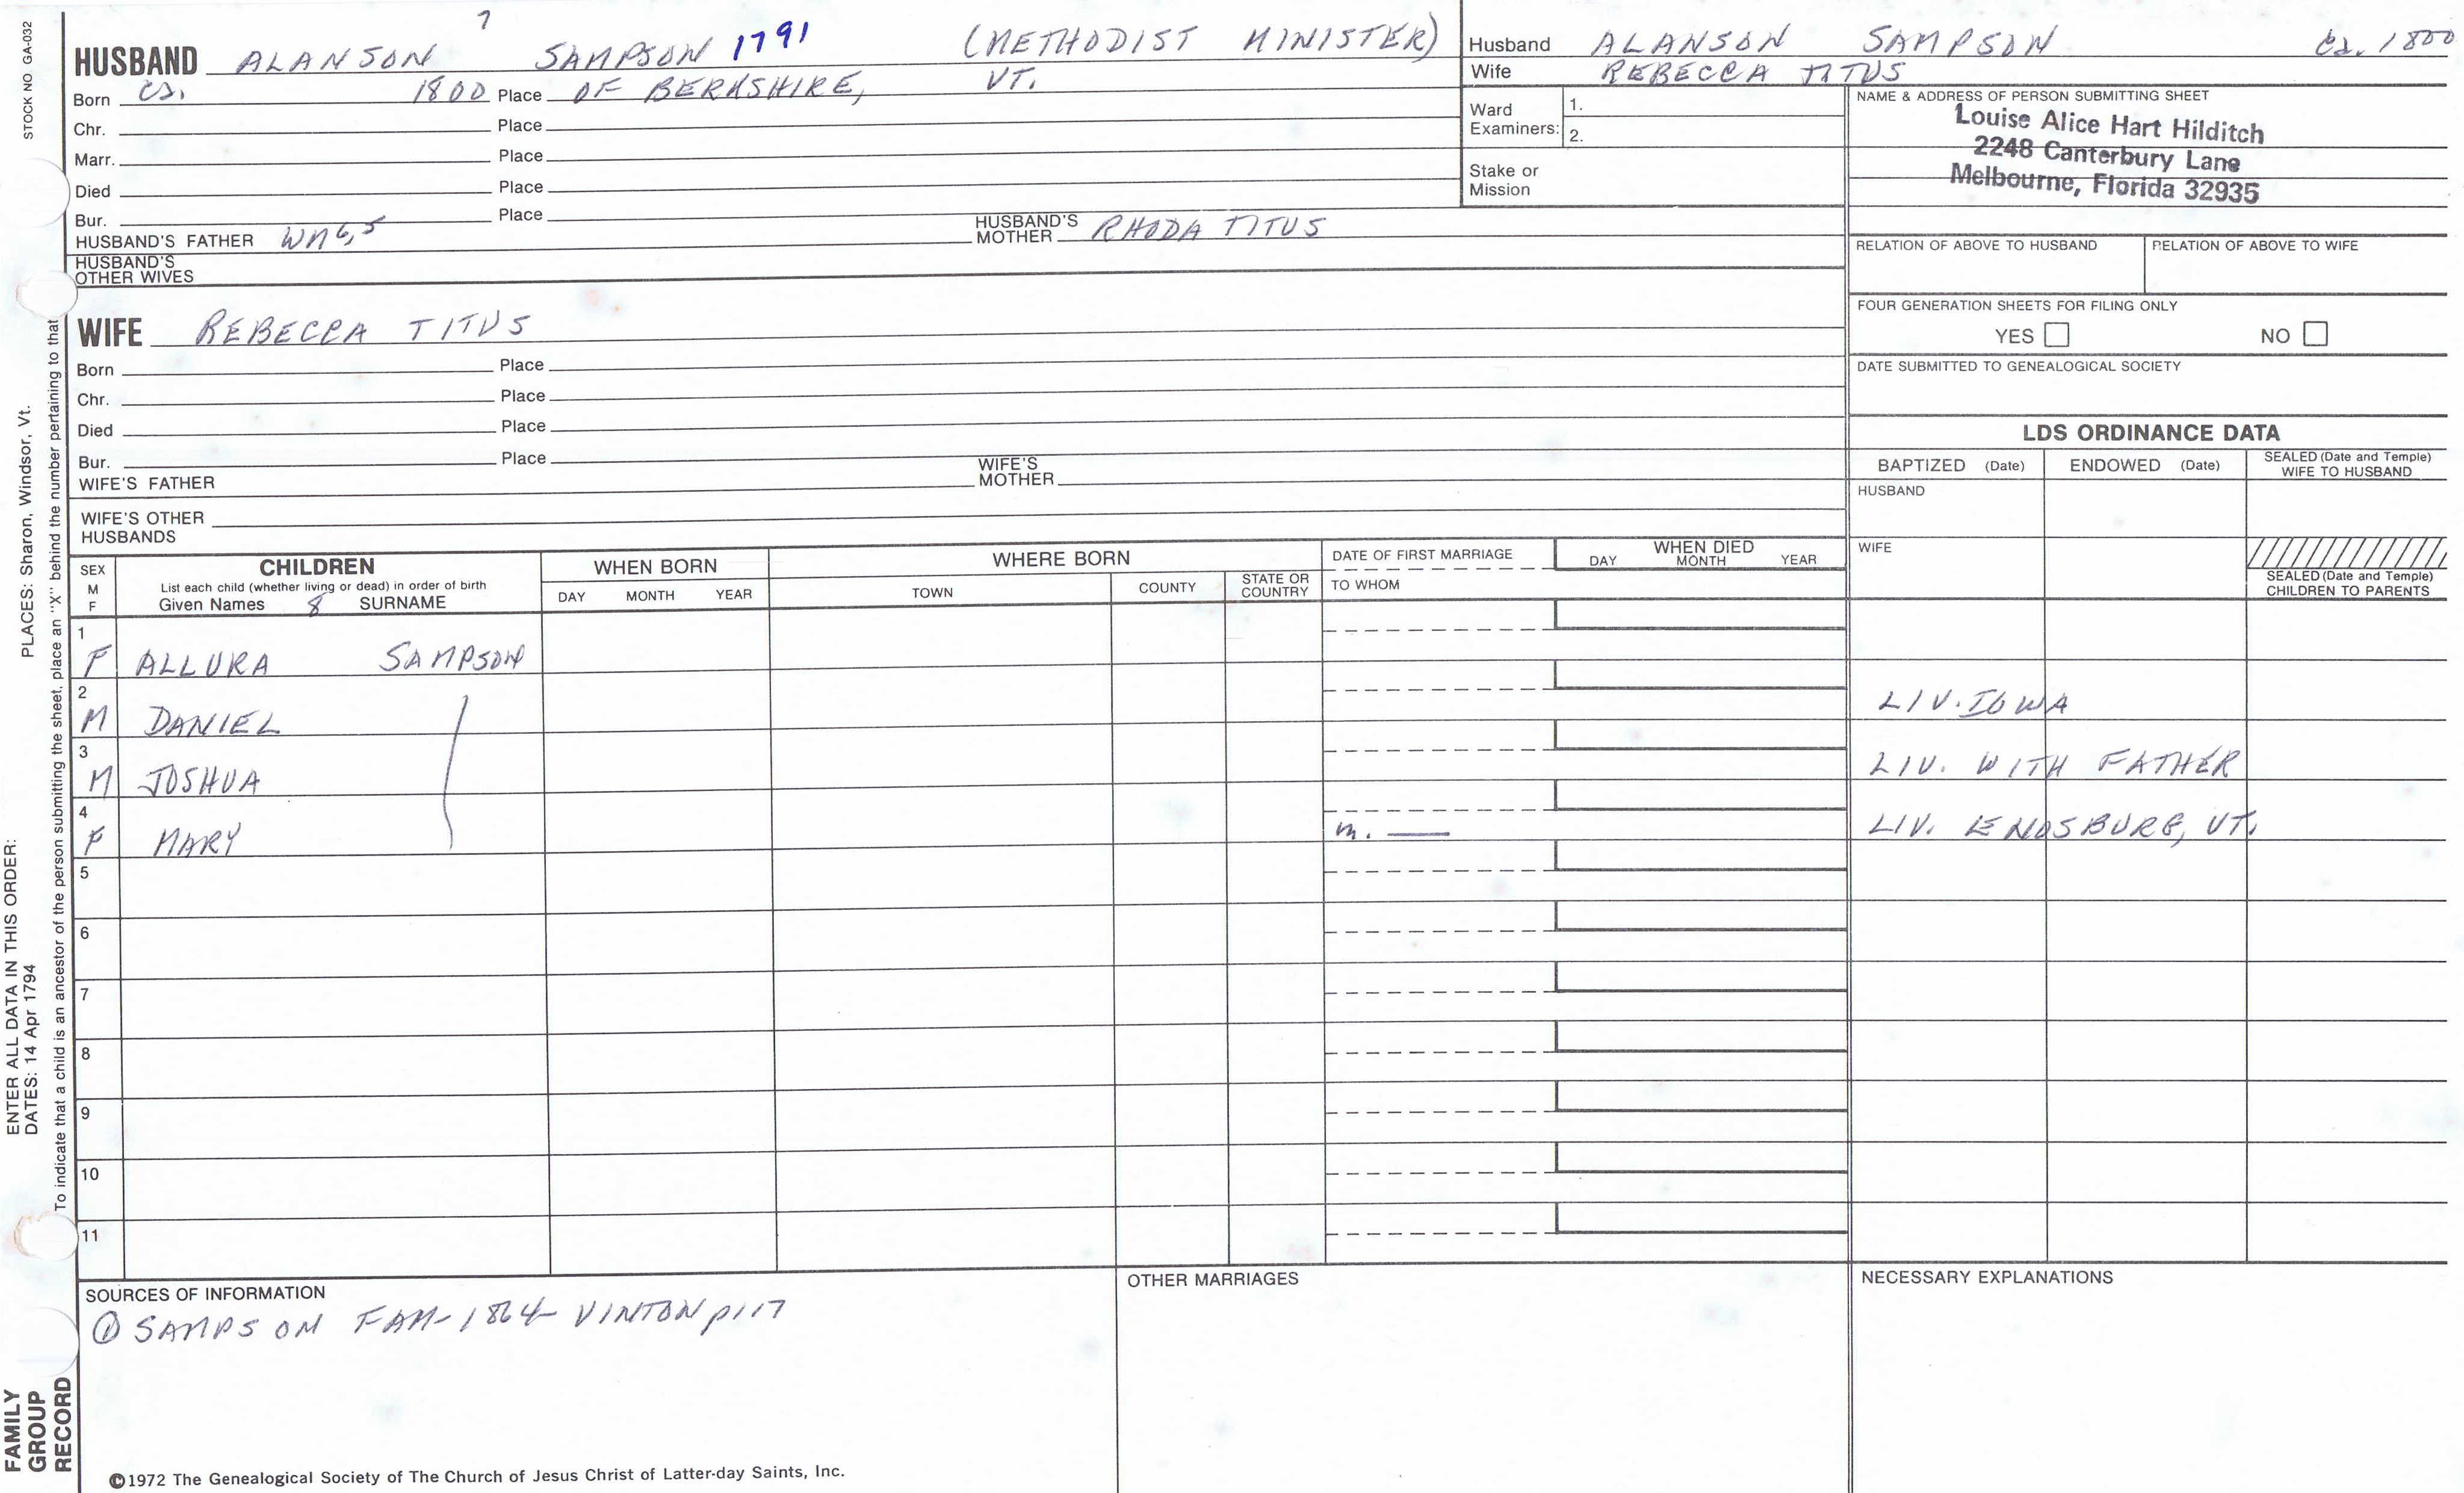 STOCK NO GA-032
7
HUSBAND ALANSON SAMPSON 1791 (METHODIST MINISTER)
Born ca. 1800 Place OF BERKSHIRE, VT.
Chr. Place
Marr. Place
Died Place
Bur. Place
HUSBAND'S FATHER WM 6,5 HUSBAND'S MOTHER RHODA TITUS
HUSBAND'S OTHER WIVES
WIFE REBECCA TITUS
Born Place
Chr. Place
Died Place
Bur. Place
WIFE'S FATHER WIFE'S MOTHER
WIFE'S OTHER HUSBANDS
Husband ALANSON SAMPSON ca. 1800
Wife REBECCA TITUS
Ward Examiners: 1.
2.
Stake or Mission
NAME & ADDRESS OF PERSON SUBMITTING SHEET
Louise Alice Hart Hilditch
2248 Canterbury Lane
Melbourne, Florida 32935
RELATION OF ABOVE TO HUSBAND RELATION OF ABOVE TO WIFE
FOUR GENERATION SHEETS FOR FILING ONLY
YES NO
DATE SUBMITTED TO GENEALOGICAL SOCIETY
LDS ORDINANCE DATA
BAPTIZED (Date) ENDOWED (Date) SEALED (Date and Temple) WIFE TO HUSBAND
HUSBAND
WIFE
SEALED (Date and Temple) CHILDREN TO PARENTS
SEX M F
CHILDREN
List each child (whether living or dead) in order of birth
Given Names 8 SURNAME
WHEN BORN
DAY MONTH YEAR
WHERE BORN
TOWN COUNTY STATE OR COUNTRY
DATE OF FIRST MARRIAGE
TO WHOM
WHEN DIED
DAY MONTH YEAR
1 F ALLURA SAMPSON
2 M DANIEL LIV. IOWA
3 M JOSHUA LIV. WITH FATHER
4 F MARY m. —— LIV. ENOSBURG, VT.
5
6
7
8
9
10
11
SOURCES OF INFORMATION
① SAMPSON FAM-1864- VINTON p117
OTHER MARRIAGES
NECESSARY EXPLANATIONS
©1972 The Genealogical Society of The Church of Jesus Christ of Latter-day Saints, Inc.
FAMILY
GROUP
RECORD
ENTER ALL DATA IN THIS ORDER:
DATES: 14 Apr 1794
PLACES: Sharon, Windsor, Vt.
To indicate that a child is an ancestor of the person submitting the sheet, place an "X" behind the number pertaining to that